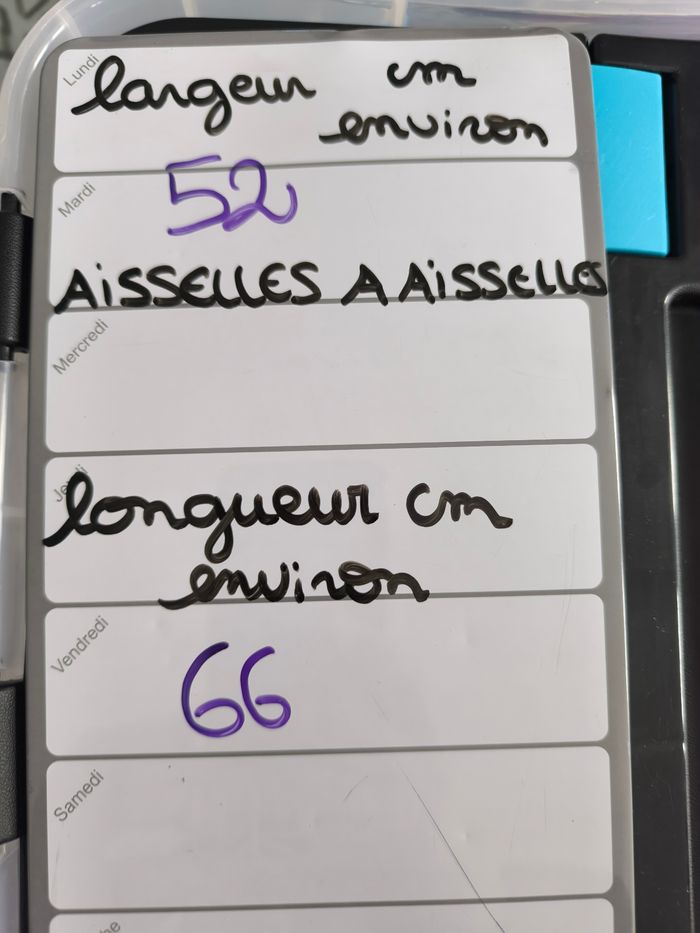 Lundi
largeur cm
environ
Mardi
52
AISSELLES A AISSELLES
Mercredi
Jeudi
longueur cm
environ
Vendredi
66
Samedi